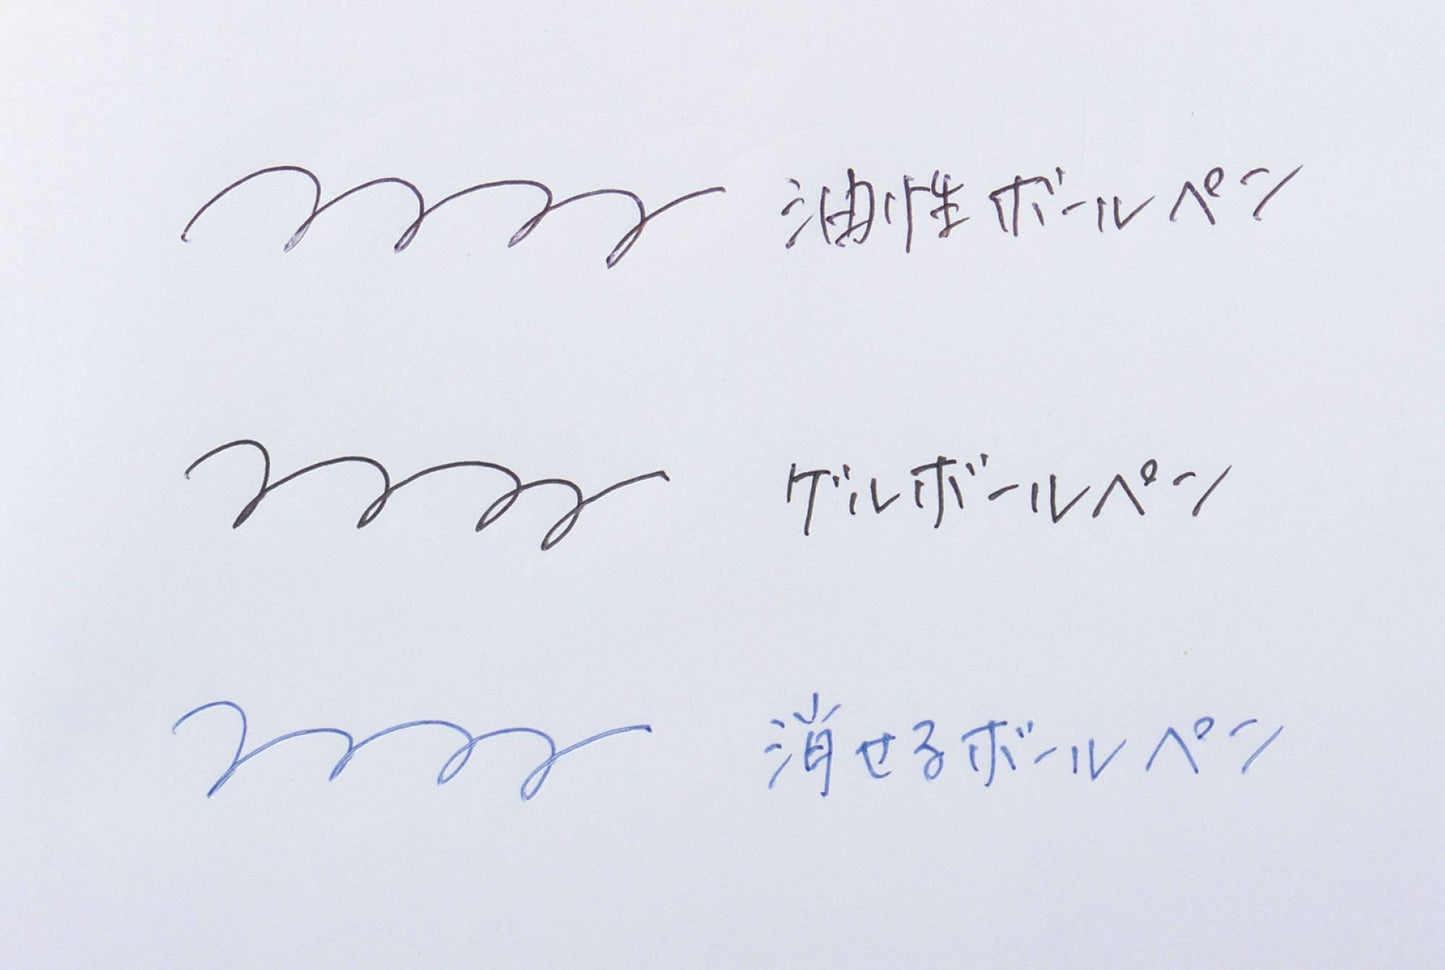 油性ボールペン
ゲルボールペン
消せるボールペン